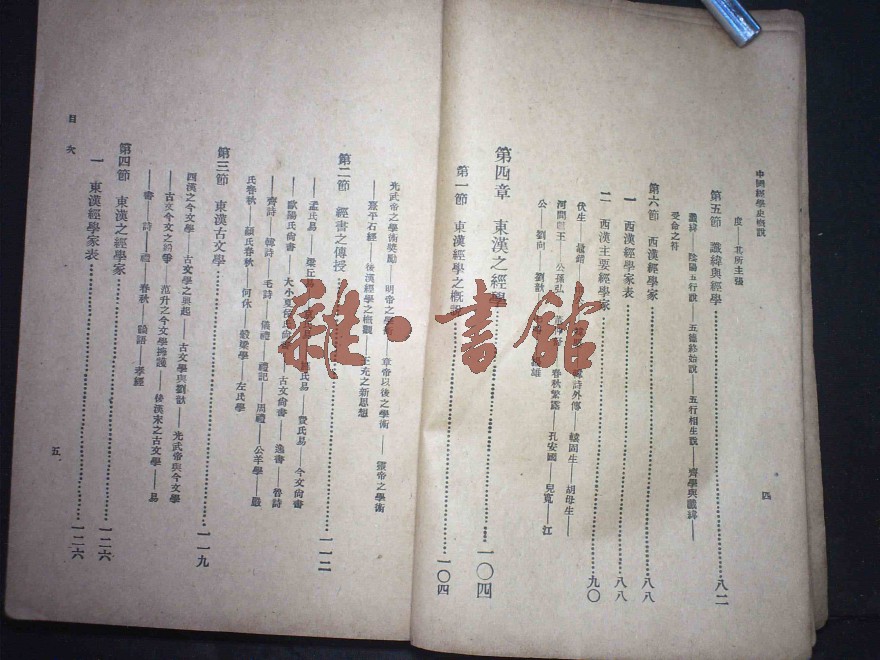 中國經學史概說
四
度——其所主張
第五節　讖緯與經學………八二
讖緯——陰陽五行說——五德終始說——五行相生說——齊學與讖緯——
受命之符
第六節　西漢經學家………八八
一　西漢經學家表………八八
二　西漢主要經學家………九〇
伏生——韓詩外傳——轅固生——胡母生——
河間獻王——公孫弘——春秋繁露——孔安國——兒寬——江
公——劉向——劉歆——雄
第四章　東漢之經學………一〇四
第一節　東漢經學之概………一〇四
光武帝之學術獎勵——明帝之學——章帝以後之學術——靈帝之學術
——熹平石經——後漢經學之概觀——王充之新思想
第二節　經書之傳授………一一二
——孟氏易——梁丘易——氏易——費氏易——今文尚書
——歐陽氏尚書——大小夏侯氏尚書——古文尚書——逸書——魯詩
——齊詩——韓詩——毛詩——儀禮——禮記——周禮——公羊學——嚴
氏春秋——顏氏春秋——何休——穀梁學——左氏學
第三節　東漢古文學………一一九
西漢之今文學——古文學之興起——古文學與劉歆——光武帝與今文學
——古文今文之紛爭——范升之今文學擁護——後漢末之古文學——易
——書——詩——禮——春秋——論語——孝經
第四節　東漢之經學家………一二六
一　東漢經學家表………一二六
目次
五
雜·書館